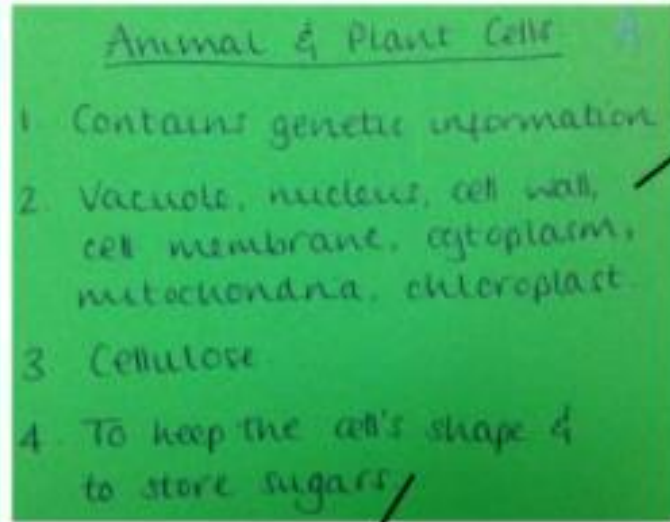 Animal & Plant Cells A
1. Contains genetic information
2. Vacuole, nucleus, cell wall,
cell membrane, cytoplasm,
mitochondria, chloroplast.
3. Cellulose
4. To keep the cell's shape &
to store sugars